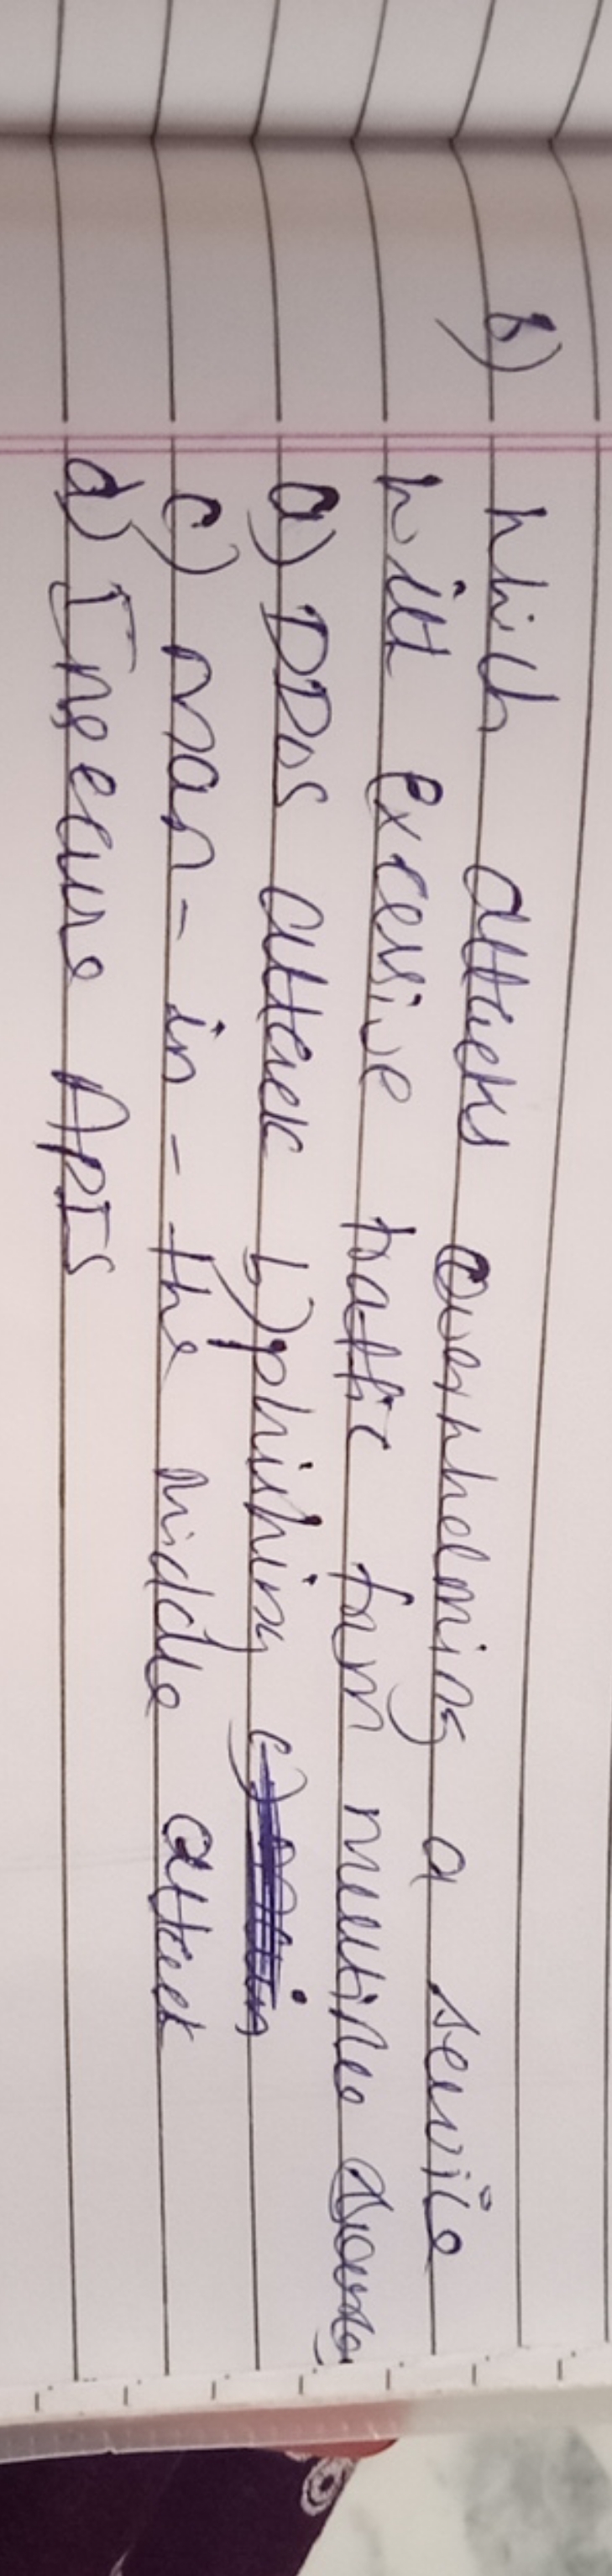 8) which attacks overwhelming a service
with excessive traffic form multiple source
a) DDoS attack b) phishing c)
c) man - in - the middle attack
d) Insecure APIs